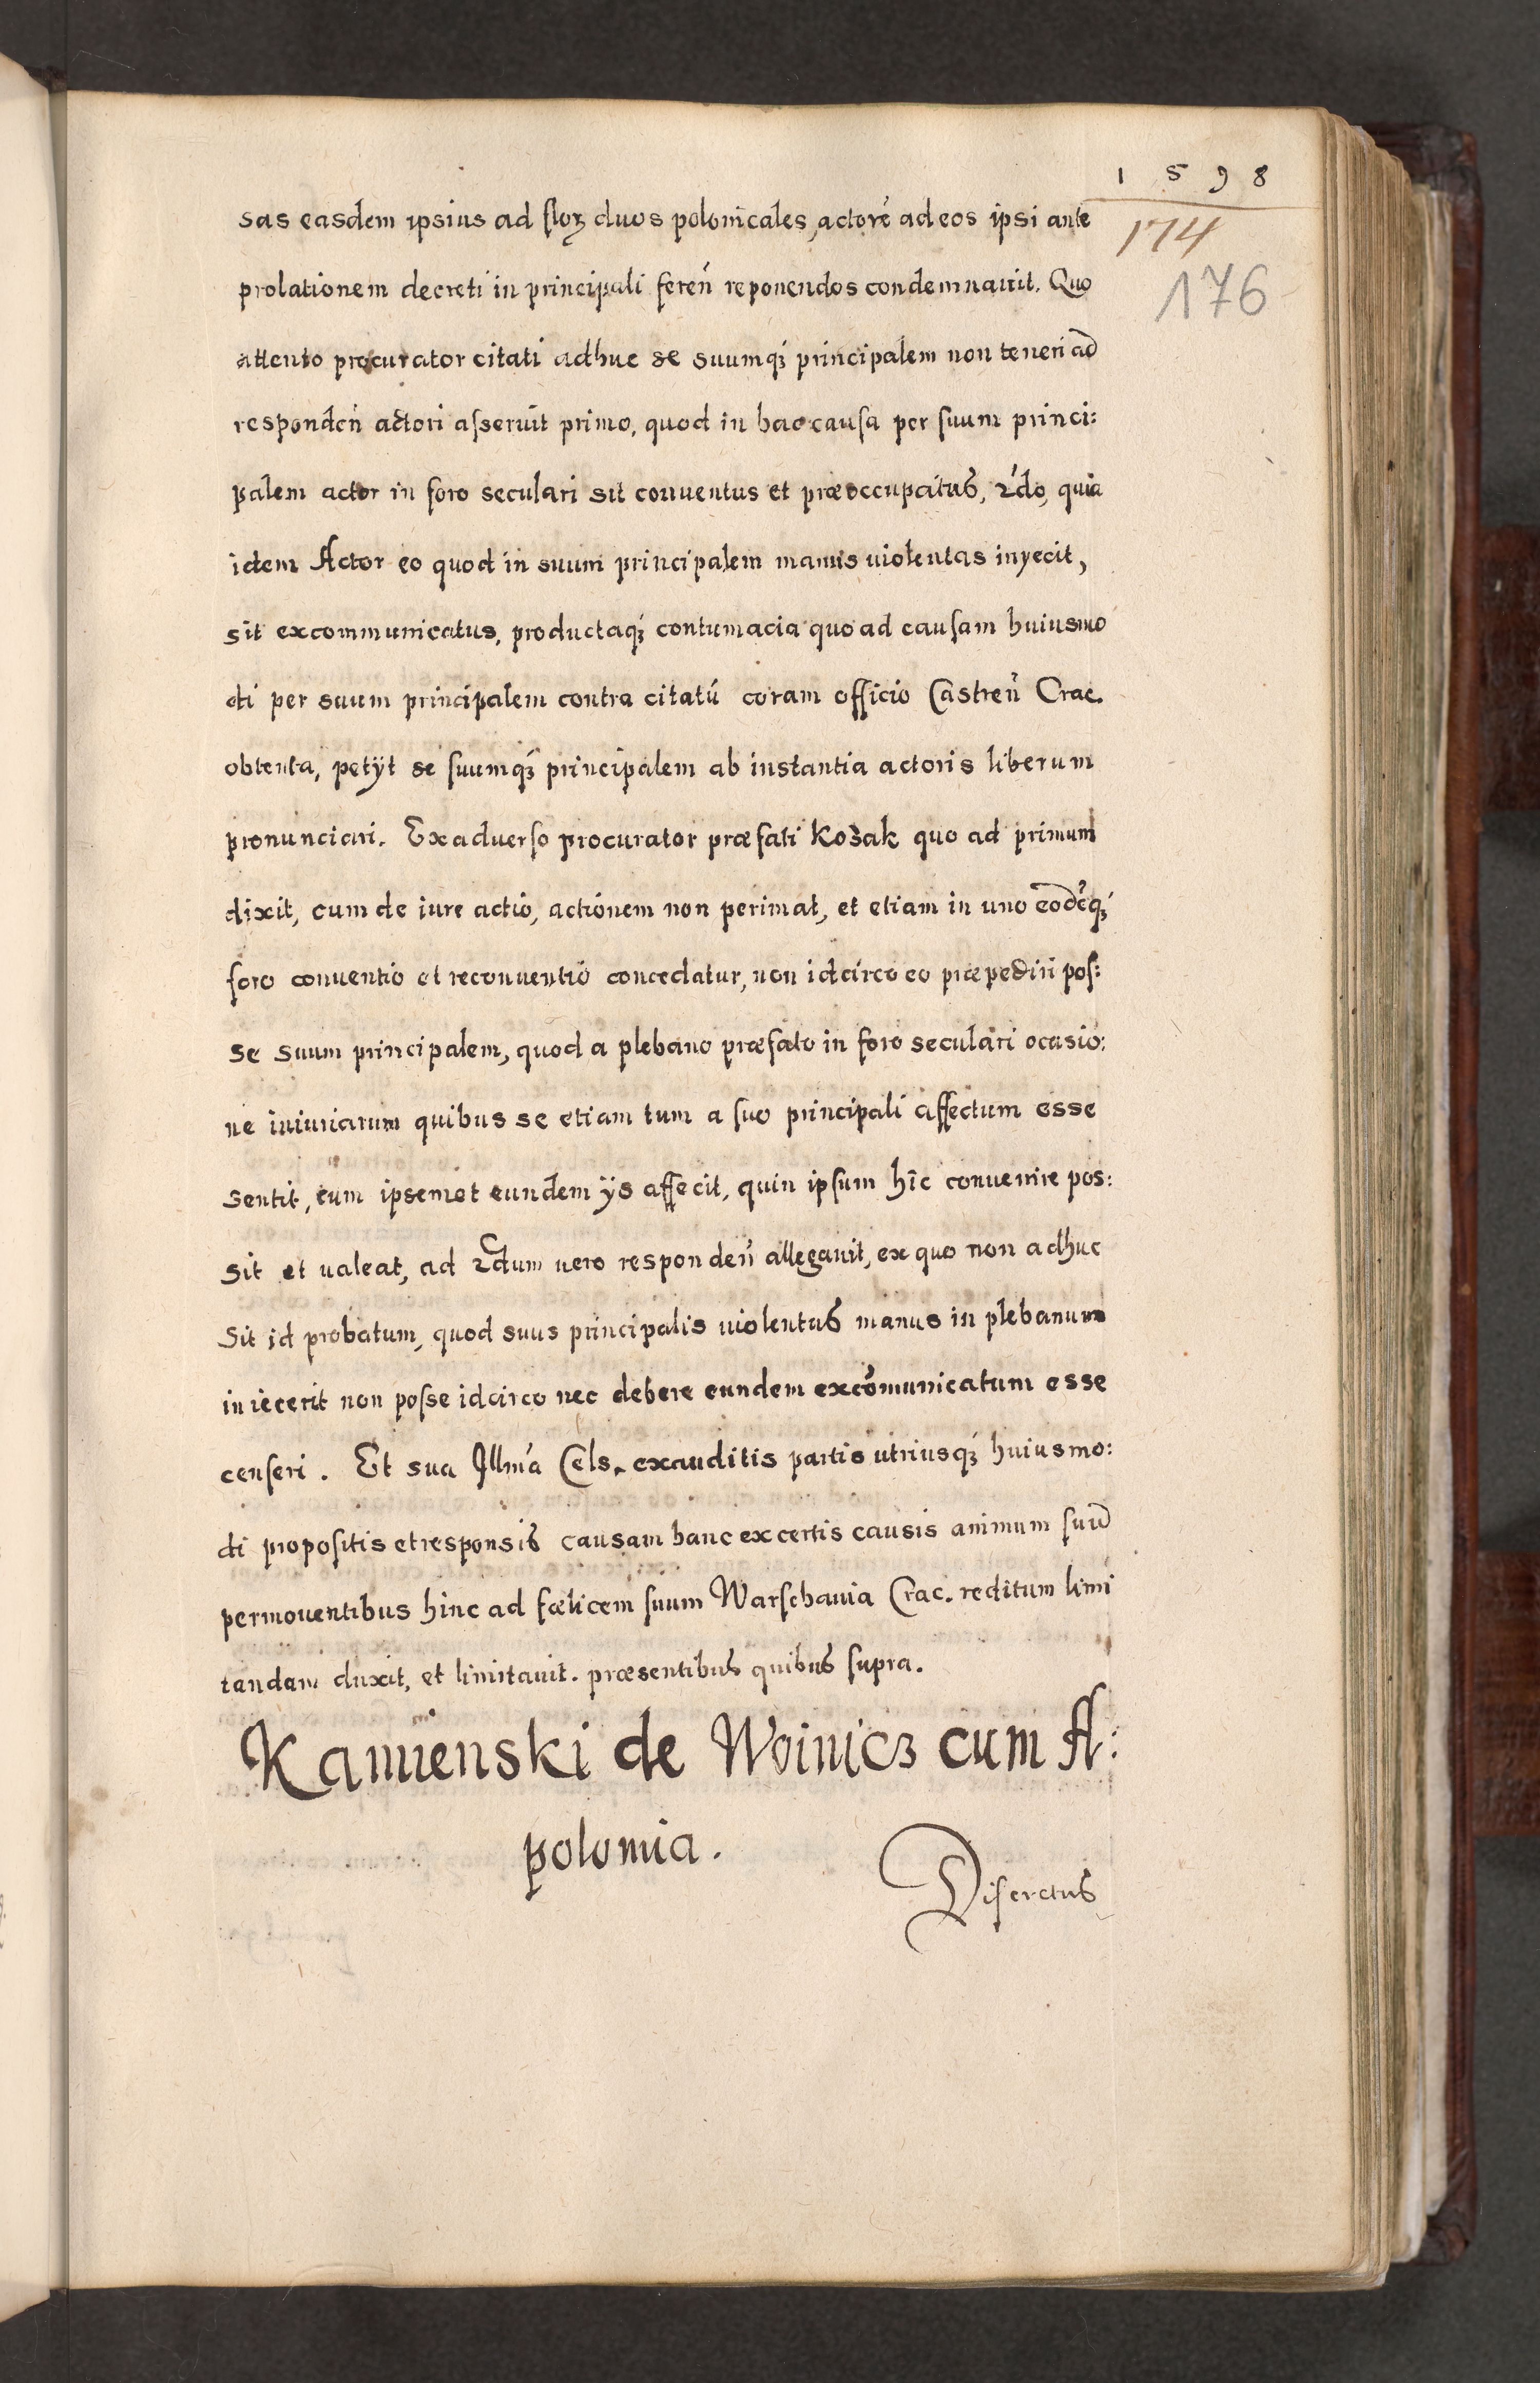 1 5 9 8
174
176
sas easdem ipsius ad floꝝ duos polonicales, actorē ad eos ipsi ante
prolationem decreti in principali fereñ reponendos condemnauit. Quo
attento procurator citati adhuc se suumqꝫ principalem non teneri ad
respondeñ actori asseruit primo, quod in hac causa per suum princi:
palem actor in foro seculari sit conuentus et præoccupatus, 2do, quia
idem Actor eo quod in suum principalem manus uiolentas inyecit,
sit excommunicatus, productaqꝫ contumacia quo ad causam huiusmo
di per suum principalem contra citatū coram officio Castreñ Crac.
obtenta, petÿt se suumqꝫ principalem ab instantia actoris liberum
pronunciari. Ex aduerso procurator præfati Kozak quo ad primum
dixit, cum de iure actio, actionem non perimat, et etiam in uno eodēqꝫ
foro conuentio et reconuentio concedatur, non idcirco eo præpediri pos:
se suum principalem, quod a plebano præfato in foro seculari ocasio:
ne iniuriarum quibus se etiam tum a suo principali affectum esse
sentit, cum ipsemet eundem ÿs affecit, quin ipsum hic conuenire pos:
sit et ualeat, ad 2dum uero respondeñ allegauit, ex quo non adhuc
sit id probatum, quod suus principalis uiolentas manus in plebanum
iniecerit non posse idcirco nec debere eundem excōmunicatum esse
censeri. Et sua Illmā Cels. exauditis partis utriusqꝫ huiusmo:
di propositis et responsis causam hanc ex certis causis animum suū
permouentibus hinc ad fœlicem suum Warschauia Crac. reditum limi
tandam duxit, et limitauit. præsentibus quibus supra.
Kamienski de Woinicz cum A:
polonia.
Disertus